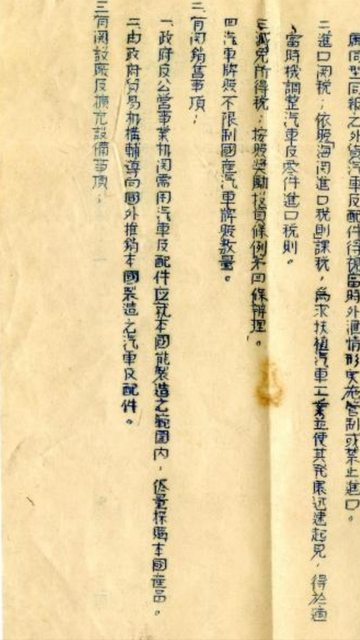 廠同型同類之外貨汽車及配件得視當時外滙情形實施管制或禁止進口。
二進口関税：依照海関進口税則課税，為求扶植汽車工業並使其発展迅速起見，得於適
當時機調整汽車及零件進口税則。
三減免所得税：按照獎勵投資條例第四條辦理。
四汽車牌照不限制國産汽車牌照數量。
二、有関銷售事項：
一政府及公営事業机関需用汽車及配件应就本國能製造之範囲內，侭量採購本國産品。
二由政府贸易机構輔導向國外推銷本國製造之汽車及配件。
三有関設廠及擴充設備事項：